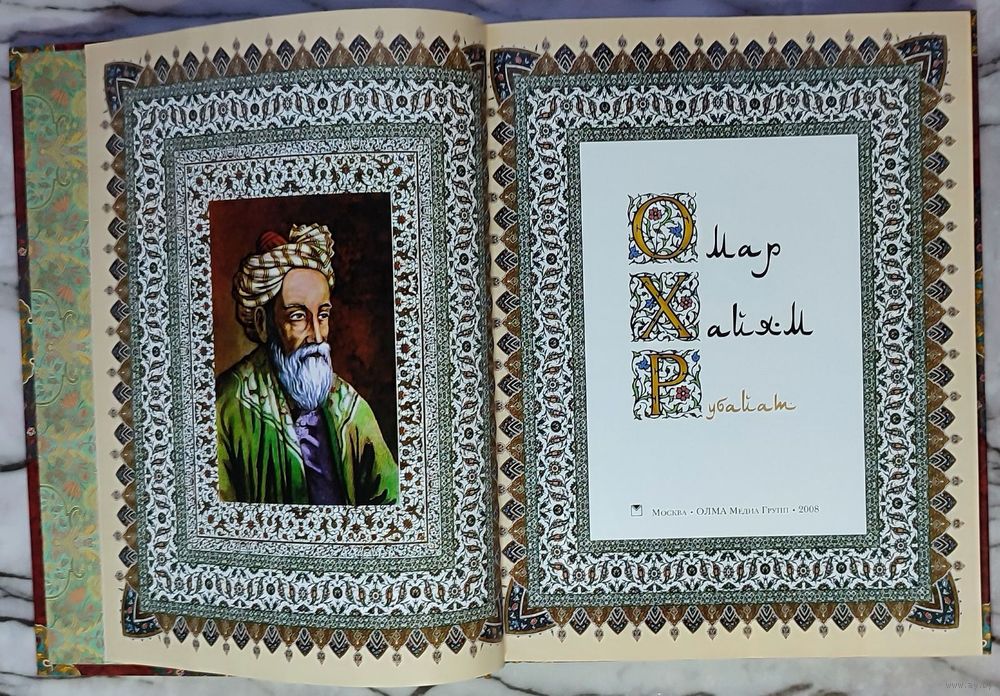 Омар
Хайям
Рубайат
Москва • ОЛМА Медиа Групп • 2008